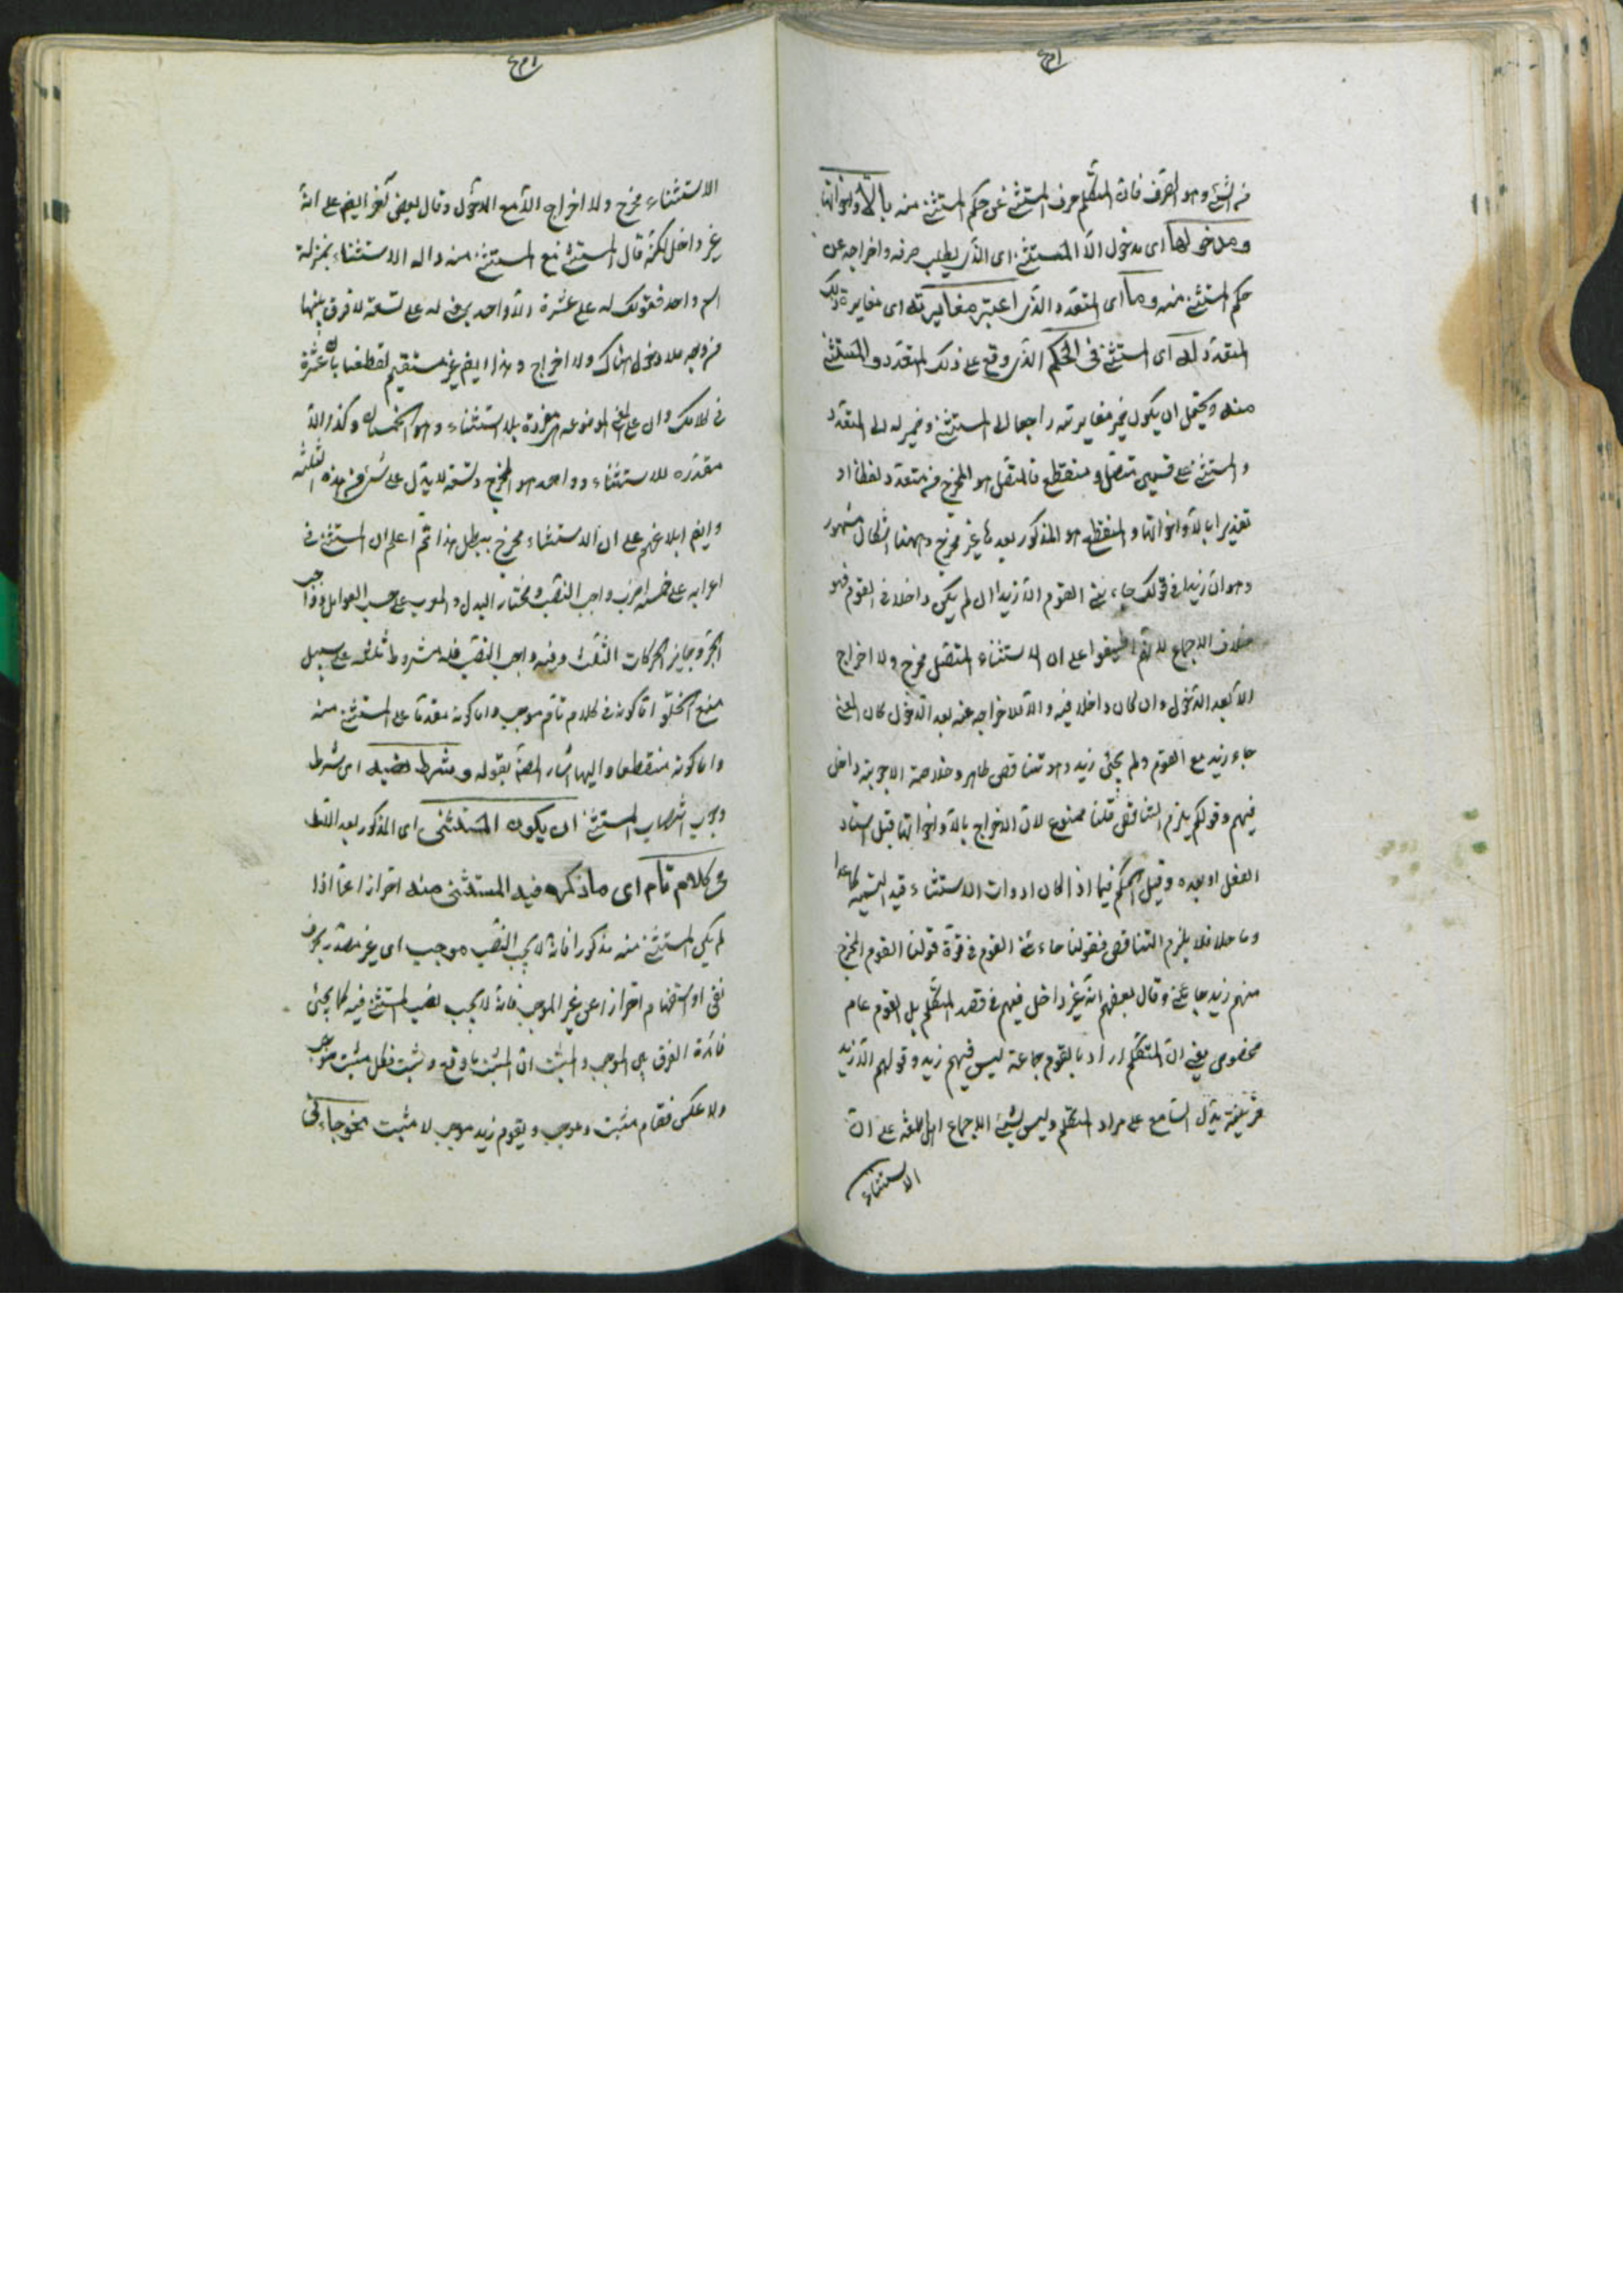 من الشيء وهو الصرف فان المتكلم صرف المستثنى عن حكم المستثنى منه بالّا واخواتها
ومدخولها اى مدخول الّا المستثنى اى الذى يطلب صرفه واخراجه عن
حكم المستثنى منه وما اى المتعدد الذى اعتبر مغايرته اى مغايرة ذلك
المتعدد له اى المستثنى فى الحكم الذى وقع على ذلك المتعدد والمستثنى
منه ويحتمل ان يكون ضمير مغايرته راجعا الى المستثنى وضمير له الى المتعدد
والمستثنى على قسمين متصل ومنقطع فالمتصل هو المخرج من متعدد لفظا او
تقديرا بالّا واخواتها والمنقطع هو المذكور بعدها غير مخرج وههنا اشكال مشهور
وهو ان زيدا فى قولك جاءنى القوم الّا زيدا ان لم يكن داخلا فى القوم فهو
خلاف الاجماع لانهم اطبقوا على ان الاستثناء المتصل مخرج ولا اخراج
الا بعد الدخول وان كان داخلا فيه والّا لاخراجه عنه بعد الدخول كان المعنى
جاء زيد مع القوم ولم يجئ زيد وهو تناقض ظاهر وخلاصة الاجوبة داخل
فيهم وقولكم يلزم التناقض قلنا ممنوع لان الاخراج بالّا واخواتها قبل اسناد
الفعل او بعده وقبل الحكم فيما اذا كان ادوات الاستثناء قيد النسبة كما عدا
وما خلا فلا يلزم التناقض فقولنا جاءنى القوم فى قوة قولنا القوم المخرج
منهم زيد جاءنى وقال بعضهم انه غير داخل فيهم فى قصد المتكلم بل القوم عام
مخصوص يعنى ان المتكلم اراد بالقوم جماعة ليس فيهم زيد وقولهم الّا زيد
قرينة يدل السامع على مراد المتكلم وليس بشئ لاجماع اهل اللغة على ان
الاستثناء
الاستثناء مخرج ولا اخراج الّا مع الدخول وقال بعض آخر ايضا على انه
غير داخل لكنه قال المستثنى مع المستثنى منه واله الاستثناء بمنزلة
اسم واحد فقولك له على عشرة الّا واحد بمعنى له على تسعة لا فرق بينهما
من وجه فلا دخول هناك ولا اخراج وهذا ايضا غير مستقيم لقطعنا بان عشرة
فى كلامك دال على المعنى الموضوعة مفردة بلا استثناء وهو الخمستان وكذا الّا
مقدره للاستثناء وواحد هو المخرج وتسعة لا يدل على شئ من هذه الثلثة
وايضا اجماعهم على ان الاستثناء مخرج يبطل هذا ثم اعلم ان المستثنى فى
اعرابه على خمسة اضرب واجب النصب ومختار البدل والمعرب على حسب العوامل وواجب
الجر وجايز الحركات الثلث وفيه واجب النصب فله شروط ثلثة على سبيل
منع الخلوّ اما كونه فى كلام تام موجب واما كونه مقدما على المستثنى منه
واما كونه منقطعا واليها اشار المصنف بقوله وشرط نصبه اى شرط
وجوب انتصاب المستثنى ان يكون المستثنى اى المذكور بعد الّا
فى كلام تام اى ما ذكر فيه المستثنى منه احترازا عما اذا
لم يكن المستثنى منه مذكورا فانه لا يجب النصب موجب اى غير مصدر بحرف
نفى او استفهام احترازا عن غير الموجب فانه لا يجب نصب المستثنى فيه كما يجئ
فائدة الفرق بين الموجب والمثبت ان المثبت ما وقع وثبت فكل مثبت موجب
ولا عكس فقام مثبت وموجب ويقوم زيد موجب لا مثبت نحو جاءنى